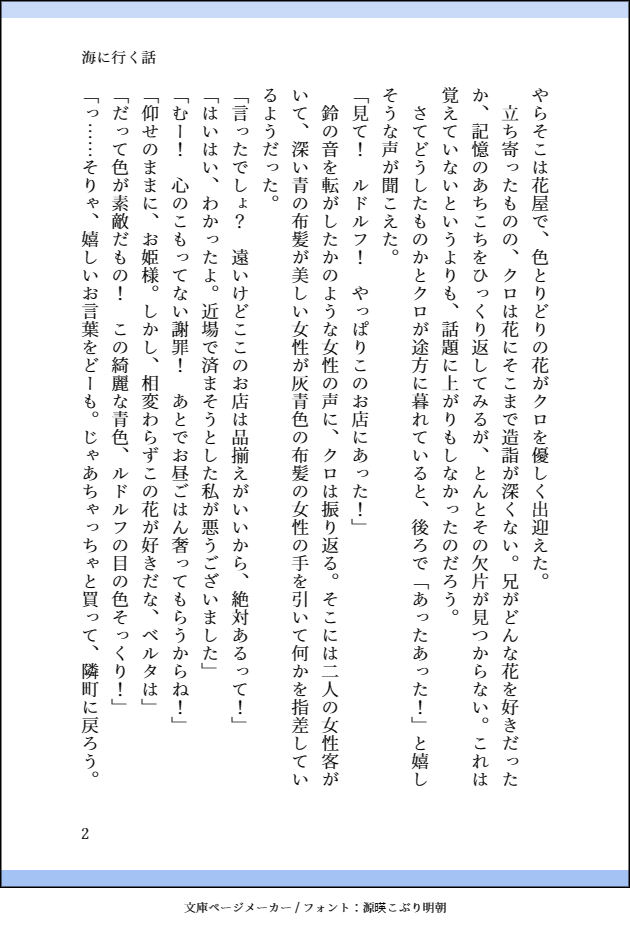 海に行く話
やらそこは花屋で、色とりどりの花がクロを優しく出迎えた。
　立ち寄ったものの、クロは花にそこまで造詣が深くない。兄がどんな花を好きだった
か、記憶のあちこちをひっくり返してみるが、とんとその欠片が見つからない。これは
覚えていないというよりも、話題に上がりもしなかったのだろう。
　さてどうしたものかとクロが途方に暮れていると、後ろで「あったあった！」と嬉し
そうな声が聞こえた。
「見て！　ルドルフ！　やっぱりこのお店にあった！」
　鈴の音を転がしたかのような女性の声に、クロは振り返る。そこには二人の女性客が
いて、深い青の布髪が美しい女性が灰青色の布髪の女性の手を引いて何かを指差してい
るようだった。
「言ったでしょ？　遠いけどここのお店は品揃えがいいから、絶対あるって！」
「はいはい、わかったよ。近場で済まそうとした私が悪うございました」
「むー！　心のこもってない謝罪！　あとでお昼ごはん奢ってもらうからね！」
「仰せのままに、お姫様。しかし、相変わらずこの花が好きだな、ベルタは」
「だって色が素敵だもの！　この綺麗な青色、ルドルフの目の色そっくり！」
「っ……そりゃ、嬉しいお言葉をどーも。じゃあちゃっちゃと買って、隣町に戻ろう。
2
文庫ページメーカー / フォント：源暎こぶり明朝